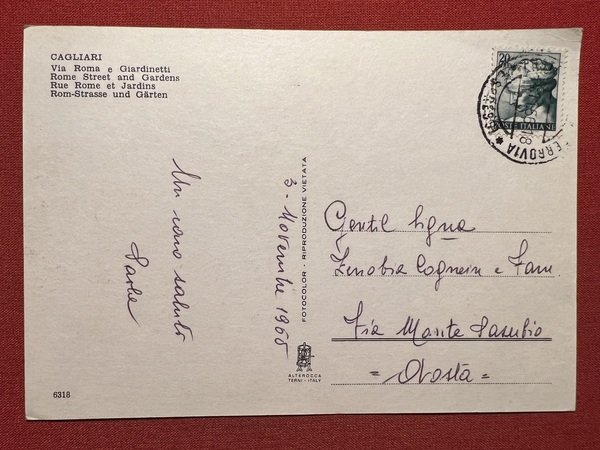 CAGLIARI
Via Roma e Giardinetti
Rome Street and Gardens
Rue Rome et Jardins
Rom-Strasse und Gärten
Un caro saluto
Paola
3 - Novembre 1965
FOTOCOLOR - RIPRODUZIONE VIETATA
ALTEROCCA
TERNI - ITALY
6318
20
POSTE ITALIANE
FERROVIA
Gentil Sigᴺᵃ
Zenobia Cognein e Fam
Via Monte Pasubio
= Aosta =